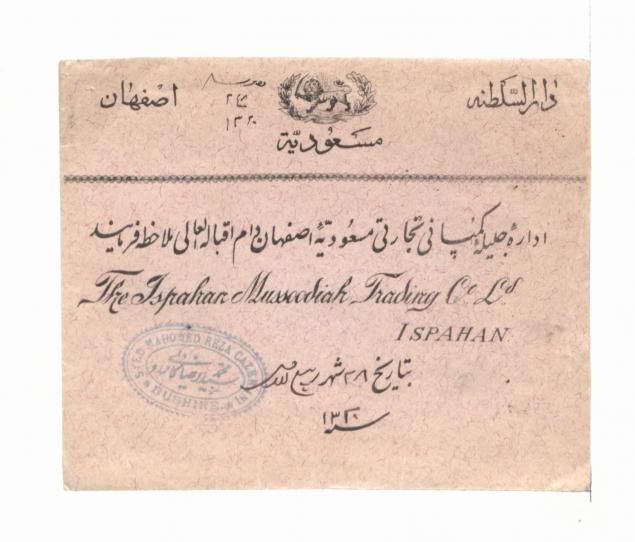 دارالسلطنه
اصفهان
۱۳۲۰
مسعودیّة
ادارهٔ جلیلهٔ کمپانی تجارتی مسعودیّهٔ اصفهان دام اقباله العالی ملاحظه فرمایند
The Ispahan Mussoodiah Trading Co Ld
ISPAHAN
بتاریخ ۲۸ شهر ربیع
سنه ۱۳۲۰
SIED MAHOMED REZA CAZERUNI
BUSHIRE